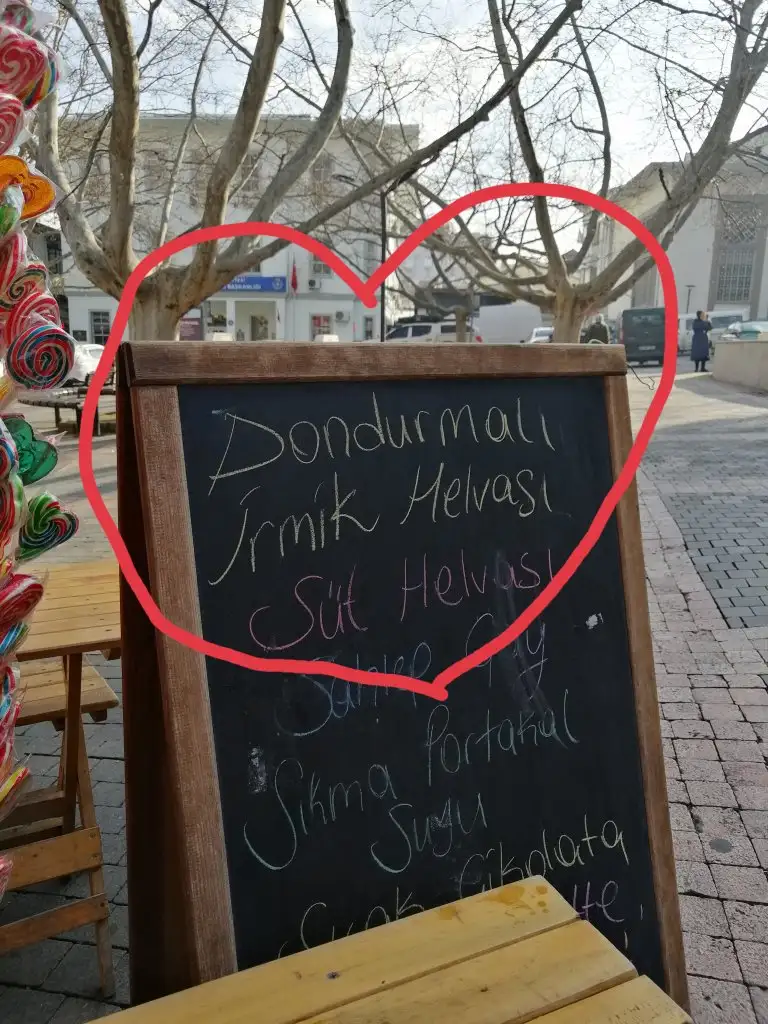 Dondurmalı
İrmik Helvası
Süt Helvası
Sahlep Çay
Sıkma Portakal
Suyu
Sıcak Çikolata